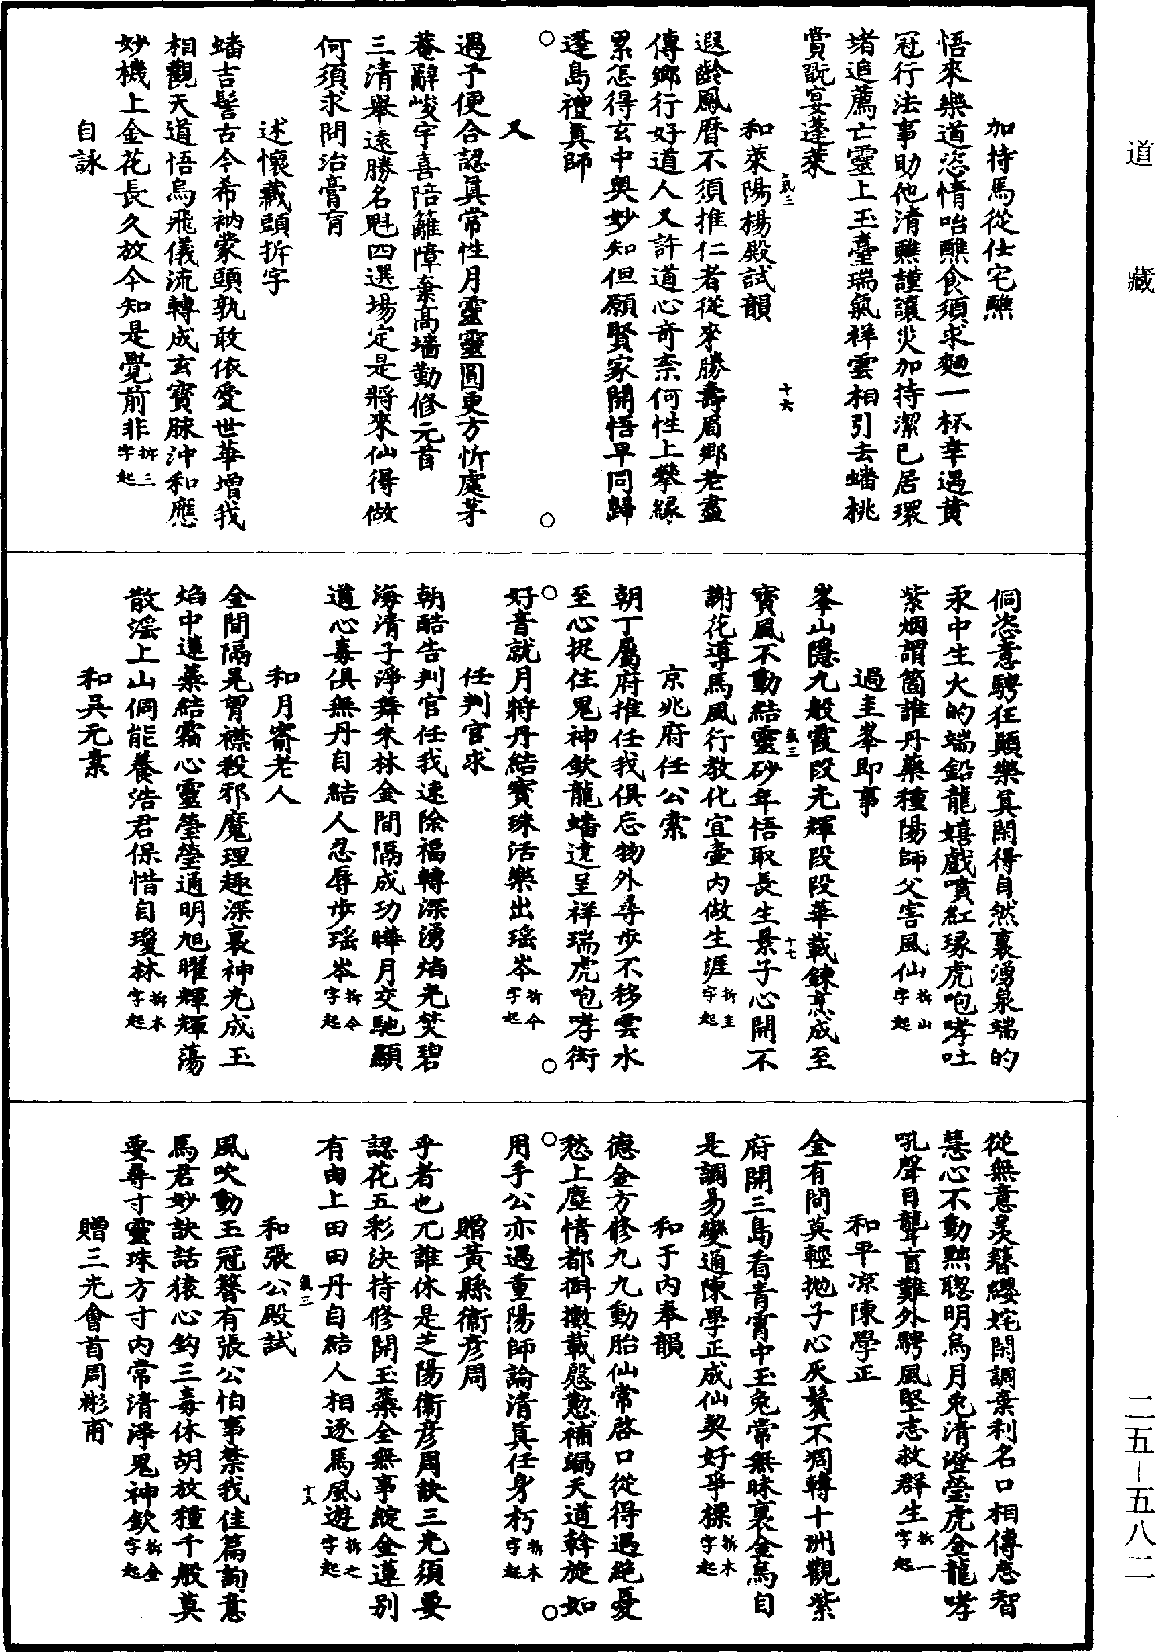 道藏
加持馬從仕宅醮
悟來樂道恣情咍醮食須求麵一杯幸遇黃
冠行法事助他清醮謹讓災加持潔己居環
堵追薦亡靈上玉臺瑞氣祥雲相引去蟠桃
賞翫宴蓬萊
和萊陽楊殿試韻
遐齡鳳曆不須推仁者從來勝壽眉鄉老盡
傳鄉行好道人又許道心奇柰何性上攀緣
累怎得玄中奧妙知但願賢家開悟早同歸
蓬島禮真師
又
過予便合認真常性月靈靈圓更方忻處茅
菴辭峻宇喜陪籬幛棄高墻勤修元首
三清舉遠勝名魁四選場定是將來仙得做
何須求問治膏肓
述懷藏頭拆字
蟠吉髻古今希衲蒙頭孰敢依愛世華增我
相觀天道悟烏飛儀流轉成玄寶脉沖和應
妙機上金花長久放今知是覺前非拆三字起
自詠
侗恣意騁狂顛樂真閑得自然裏湧泉端的
汞中生大的端鉛龍嬉戲噴紅琭虎咆哮吐
紫烟謂箇誰丹藥種陽師父害風仙拆山字起
過圭峯即事
峯山隱九般霞段光輝段段華載鍊烹成至
寶風不動結靈砂年悟取長生景子心開不
謝花導馬風行教化宜壷內做生涯拆主字起
京兆府任公索
朝丁屬府推任我俱忘物外尋步不移雲水
至心捉住鬼神欽龍蟠遶呈祥瑞虎咆哮衒
好音就月將丹結寶珠活樂出瑶岑拆今字起
任判官求
朝酷告判官任我速除福轉深湧焰光焚碧
海清子淨舞朱林金間隔成功曄月交馳顯
道心毒俱無丹自結人忍辱步瑶岑拆今字起
和月窬老人
金間隔晃胷襟殺邪魔理趣深裏神光成玉
焰中蓮蘂結霜心靈瑩瑩通明旭曜輝輝蕩
散滛上山侗能養浩君保惜自瓊林拆木字起
和吳元素
從無意羨簮纓姹閑調棄利名口相傳㤙智
慧心不動㸃聰明烏月兎清澄瑩虎金龍哮
吼聲目聾盲難外騁風堅志救群生拆一字起
和平凉陳學正
金有問莫輕抛子心灰鬢不凋轉十洲觀紫
府開三島看青霄中玉兎常無昧裏金烏自
是調易變通陳學正成仙契好爭摽拆木字起
和于內奉韻
德金方修九九動胎仙常啓口從得遇絕憂
愁上塵情都㪺撒載愆尤補蝸天道斡旋如
用手公亦遇重陽師論清真任身朽拆木字起
贈黃縣衞彥周
乎者也兀誰休是芝陽衞彥周訣三光須要
認花五彩決持修開玉蘂全無事綻金蓮別
有由上田田丹自結人相逐馬風遊拆之字起
和張公殿試
風吹動玉冠簮有張公怕事禁我佳篇詞意
馬君妙訣話猿心鈎三毒休胡放種千般莫
要尋寸靈珠方寸內常清淨鬼神欽拆金字起
贈三光會首周彬甫
二五－五八二